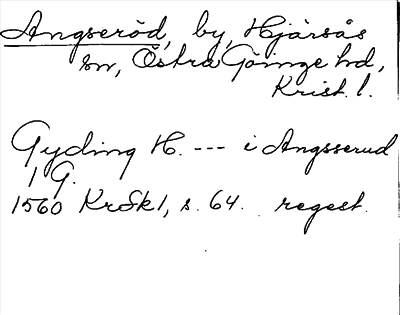 Angseröd, by, Hjärsås
sn, Östra Göinge hd,
Krist. l.
Gyding H. --- i Angsserud
1 G.
1560 KrSkI, s. 64. regest.